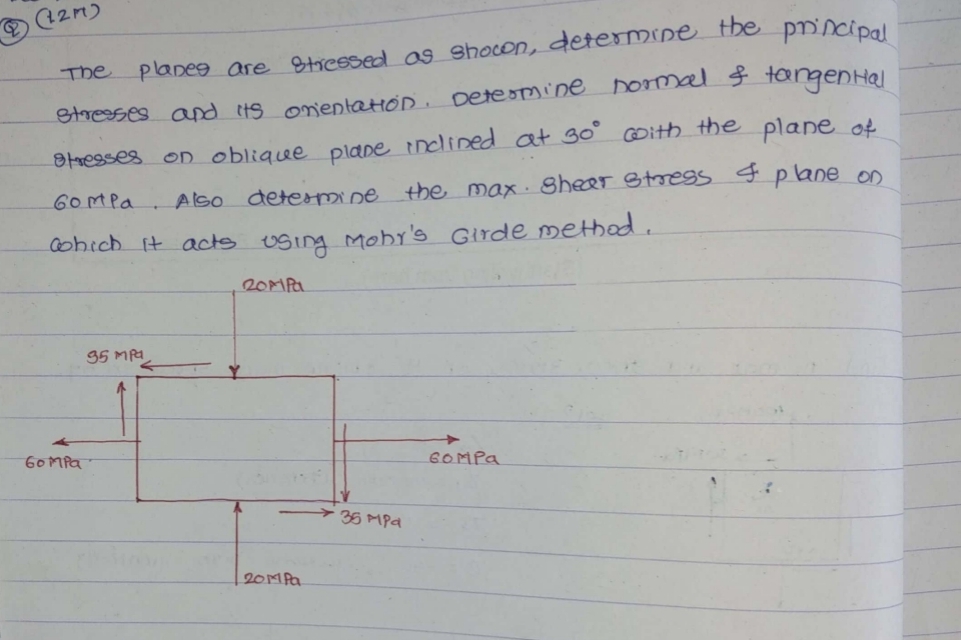 Q (12M)
The planes are stressed as shown, determine the principal
stresses and its orientation. Determine normal & tangential
stresses on oblique plane inclined at 30° with the plane of
60 MPa. Also determine the max. shear stress & plane on
which it acts using Mohr's Circle method.
20MPa
35 MPa
60MPa
60MPa
35 MPa
20MPa